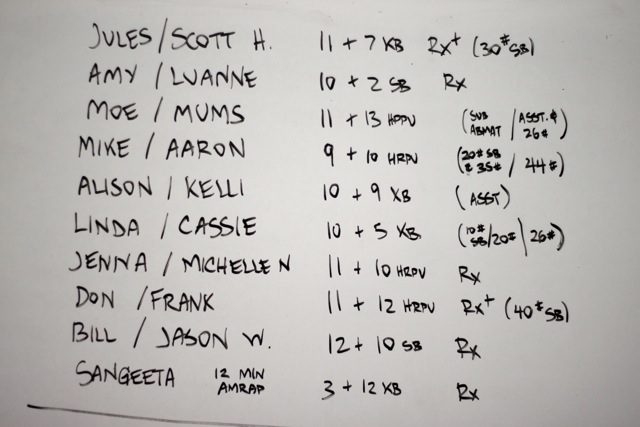 JULES / SCOTT H. 11 + 7 KB RX+ (30# SB)
AMY / LUANNE 10 + 2 SB RX
MOE / MUMS 11 + 13 HRPU (SUB ABMAT / ASST. & 26#)
MIKE / AARON 9 + 10 HRPU (20# SB & 35# / 44#)
ALISON / KELLI 10 + 9 KB (ASST)
LINDA / CASSIE 10 + 5 KB (10# SB/20# / 26#)
JENNA / MICHELLE N 11 + 10 HRPU RX
DON / FRANK 11 + 12 HRPU RX+ (40# SB)
BILL / JASON W. 12 + 10 SB RX
SANGEETA 12 MIN AMRAP 3 + 12 KB RX